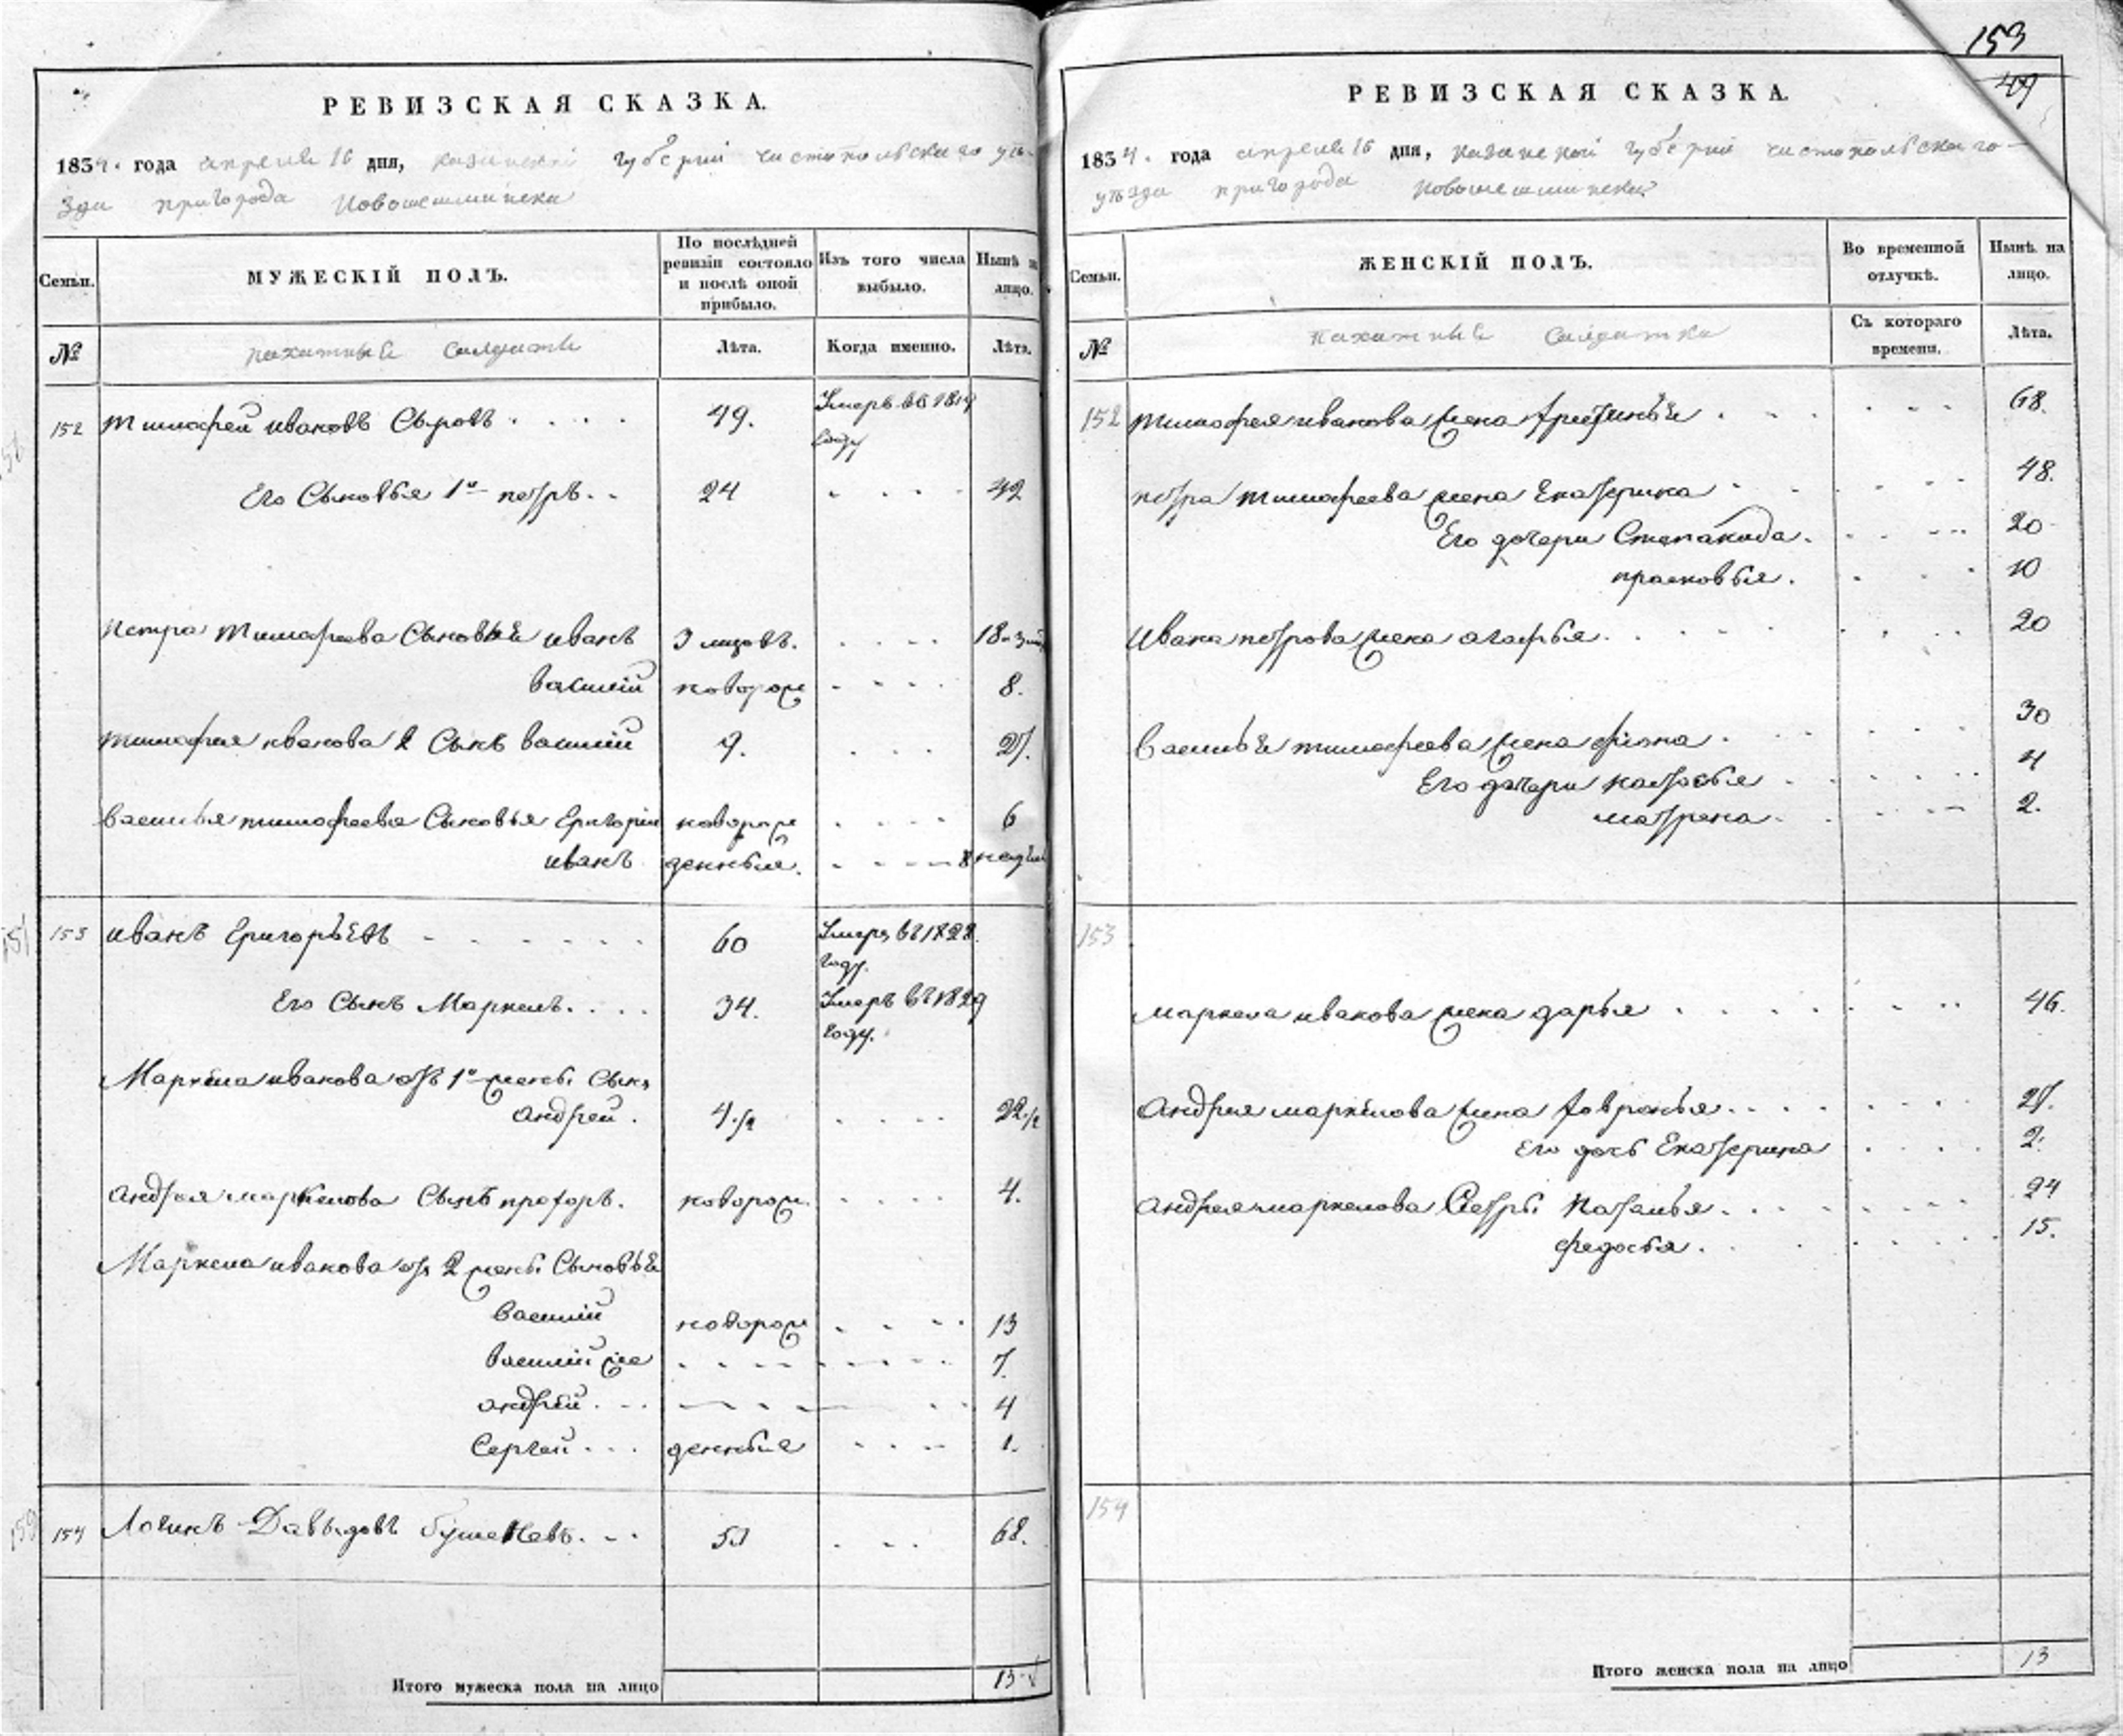 153
49
РЕВИЗСКАЯ СКАЗКА.
1834. года апреля 16 дня, казанской губернии чистопольскаго уѣ-
зда пригорода Новошешминска
Семьи.
МУЖЕСКІЙ ПОЛЪ.
По послѣдней ревизіи состояло и послѣ оной прибыло.
Изъ того числа выбыло.
Нынѣ на лицо.
№
пахатные Салдаты
Лѣта.
Когда именно.
Лѣта.
152 Тимофей ивановъ Сыровъ . . . . 49. Умеръ въ 1819 году
Его Сыновья 1й петръ . . 24 . . . . 42
Петра Тимофеева Сыновьи иванъ 3 мцовъ. . . . . 18 и 3 мц
василій новорож . . . . 8.
Тимофея иванова 2 Сынъ василий 9. . . . 27.
Василья тимофеева Сыновья Григорій новорож . . . . 6
иванъ денныя. . . . . 8 недѣль
153 иванъ Григорьевъ - - - - - - 60 Умеръ въ 1828 году.
Его Сынъ Маркелъ. . . . 34. Умеръ въ 1829 году.
Маркела иванова отъ 1й жены Сынъ
андрей . 4.1/2 . . . . 22.1/2
андрея маркелова Сынъ прохоръ. новорож. . . . . 4.
Маркела иванова отъ 2 жены Сыновьи
василій новорож . . . . 13
василій же . . . . . . . . 7.
андрей. - - - - - - - . . 4
Сергей . . . денныя . . . . 1.
154 Логинъ Давыдовъ . - - . . . 68.
Итого мужеска пола на лицо 13
РЕВИЗСКАЯ СКАЗКА.
1834. года апреля 16 дня, казанской губернии чистопольскаго-
уѣзда пригорода Новошешминска
Семьи.
ЖЕНСКІЙ ПОЛЪ.
Во временной отлучкѣ.
Нынѣ на лицо.
№
пахатные Салдатки
Съ котораго времени.
Лѣта.
152 Тимофея иванова жена . . . . . . 68.
петра тимофеева жена Екатерина . . . . . 48.
Его дочери Степанида. . . . . 20
прасковья. . . . 10
Ивана петрова жена агафья. . . . . . . . . 20
Василья тимофеева жена . . . . . . 30
Его дочери настасья . . . . . 4
матрена. . . . . 2.
153
маркела иванова жена дарья . . . . . . . . 46.
андрея маркелова жена Февронья. . . . . . . . 27.
Его дочь Екатерина . . . . 2.
андрея маркелова Сестры Наталья. . . . . . . 24
федосья. . . . . . . 15.
154
Итого женска пола на лицо 13